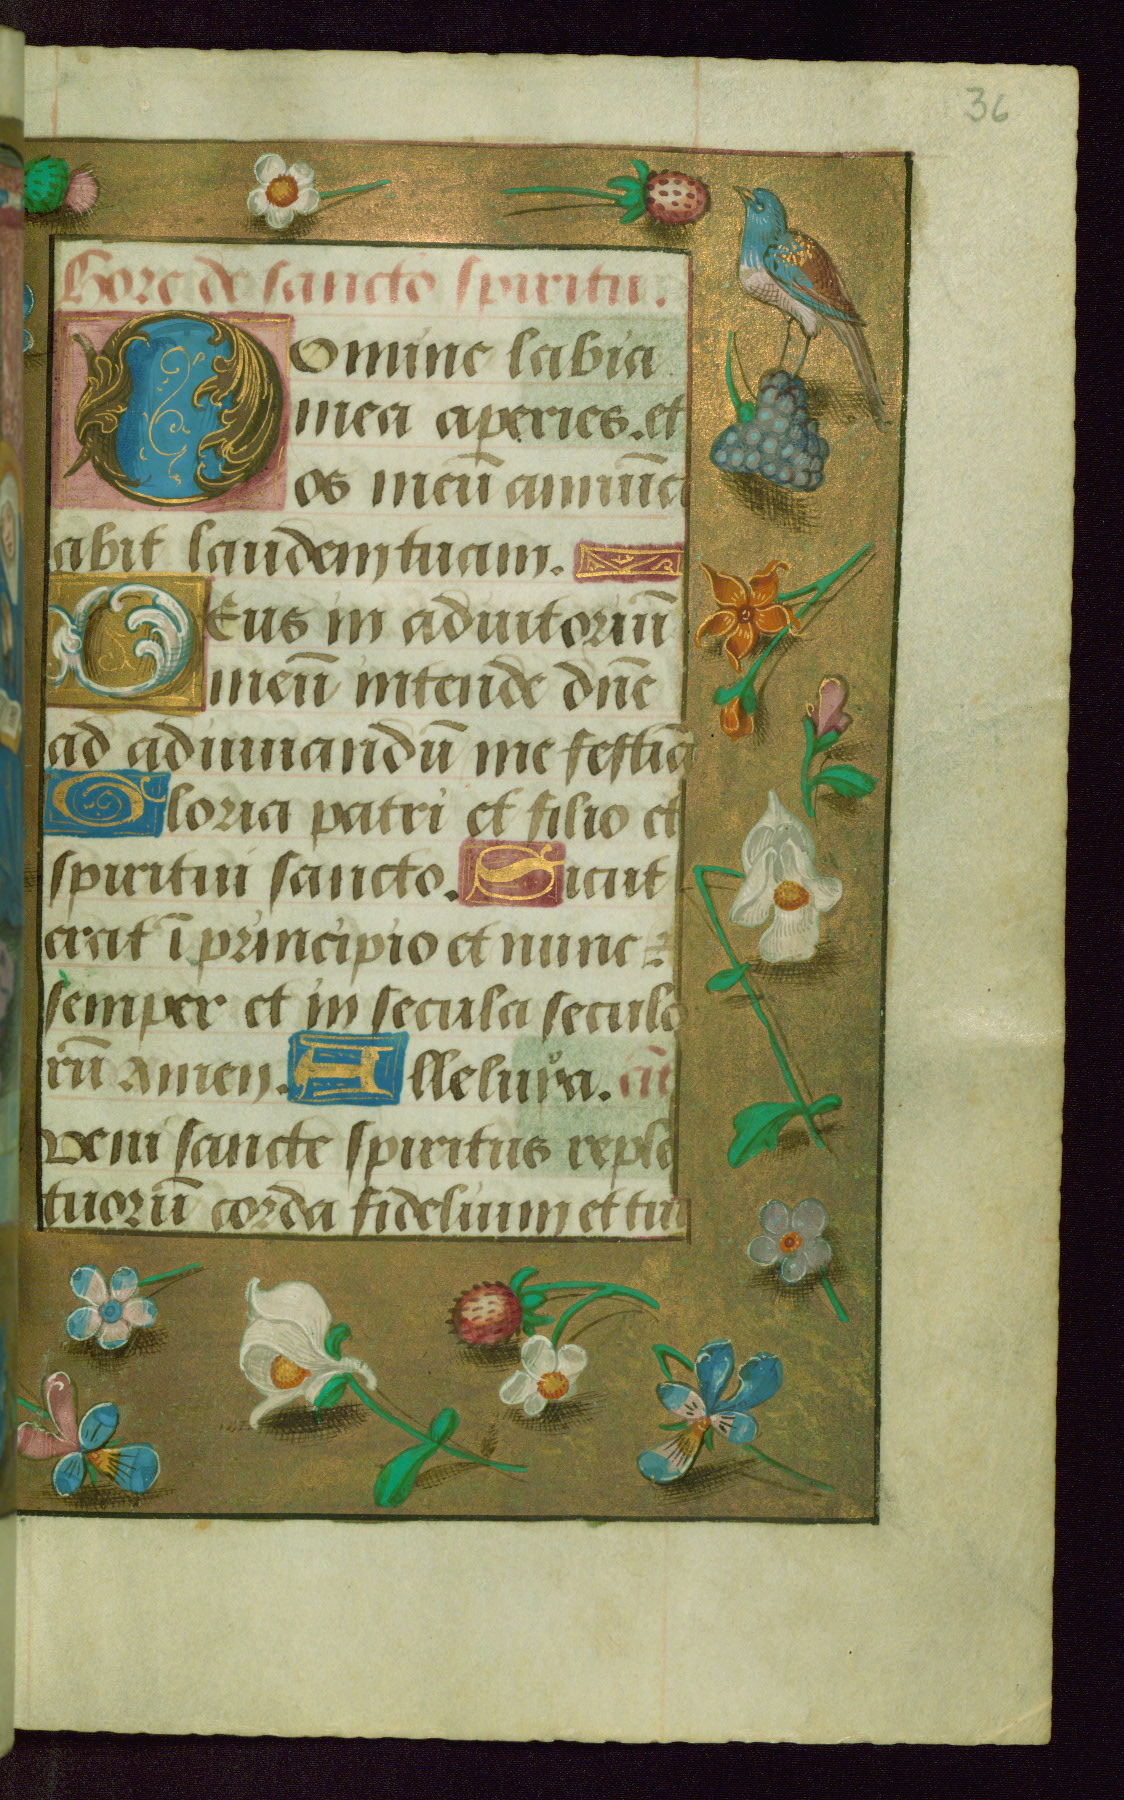 36
Hore de sancto spiritu.
Domine labia
mea aperies. et
os meū annūci
abit laudem tuam.
Deus in adiutoriū
meū intende dn̄e
ad adiuuandū me festiā
Gloria patri et filio et
spiritui sancto. Sicut
erat ī principio et nunc ⁊
semper et in secula seculo
rū amen. Alleluya. añ
Veni sancte spiritus reple
tuorū corda fidelium et tui